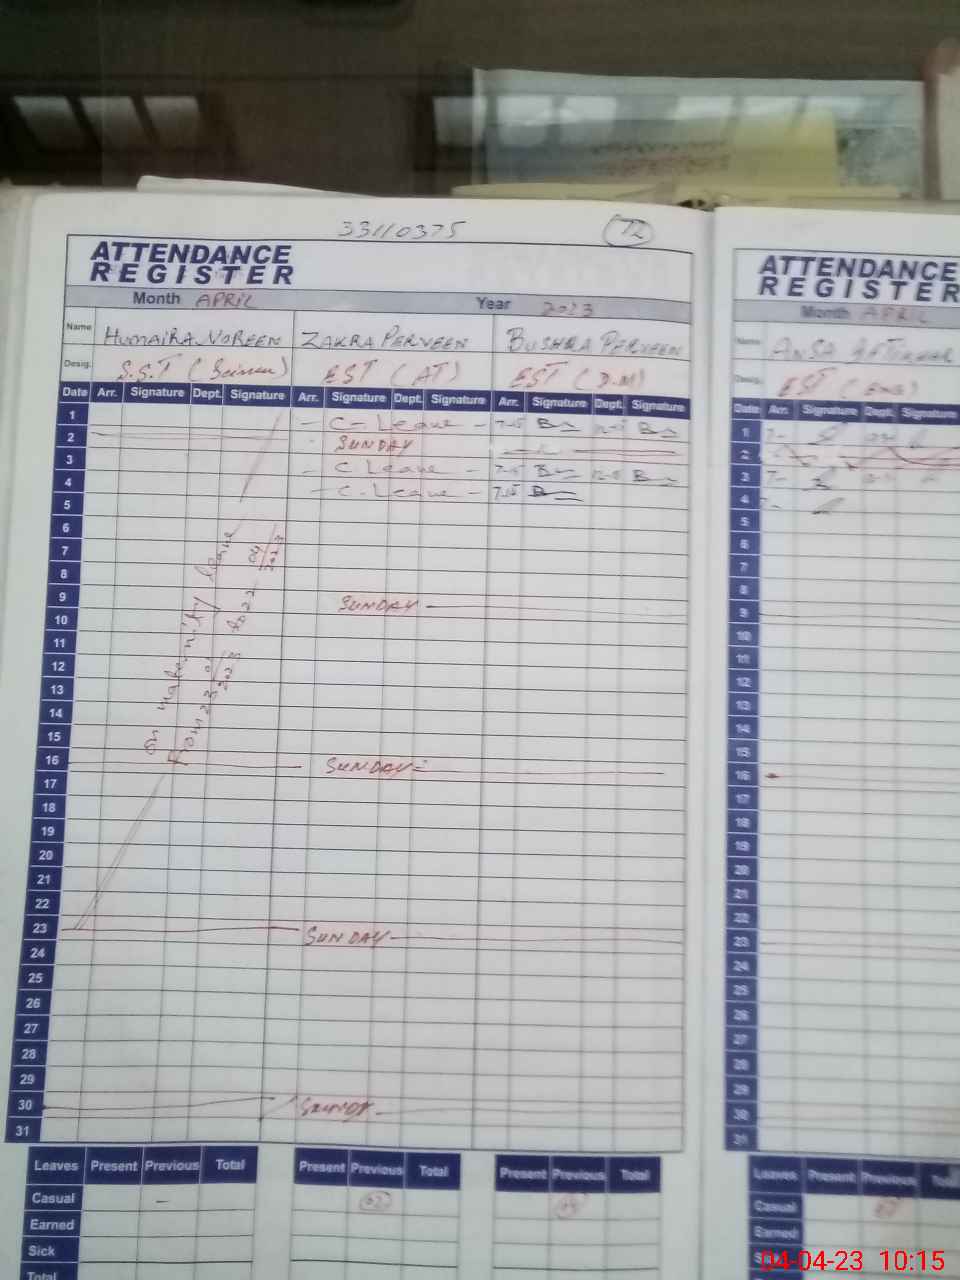 33110375 72
ATTENDANCE
REGISTER
Month APRIL Year 2023
Name HUMAIRA NOREEN ZAKRA PERVEEN BUSHRA PERVEEN
Desig. S.S.T ( EST (AT) EST (D.M)
Date Arr. Signature Dept. Signature Arr. Signature Dept. Signature Arr. Signature Dept. Signature
1 - C-Leave -
2 SUNDAY
3 - C Leave -
4 - C-Leave - 7.15
5
6
7
8
9 SUNDAY -
10
11
12
13
14
15
16 SUNDAY
17
18
19
20
21
22
23 SUNDAY
24
25
26
27
28
29
30
31
on leave
from 23
Leaves Present Previous Total Present Previous Total Present Previous Total
Casual - 02
Earned
Sick
Total
ATTENDANCE
REGISTER
Month APRIL
Name ANSA
Desig. EST (ENG)
Date Arr. Signature Dept. Signature
1
2
3
4
5
6
7
8
9
10
11
12
13
14
15
16
17
18
19
20
21
22
23
24
25
26
27
28
29
30
31
Leaves Present Previous
Casual
Earned
04-04-23 10:15